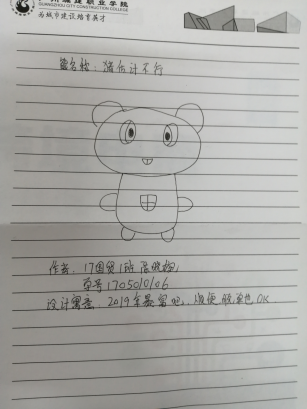 州城建职业学院
GUANGZHOU CITY CONSTRUCTION COLLEGE
为城市建设培育英才
签名档：猪估计不行
作者：17国贸1班 陈晓
学号 170501106
设计寓意：2019年暴富吧，顺便脱单也OK